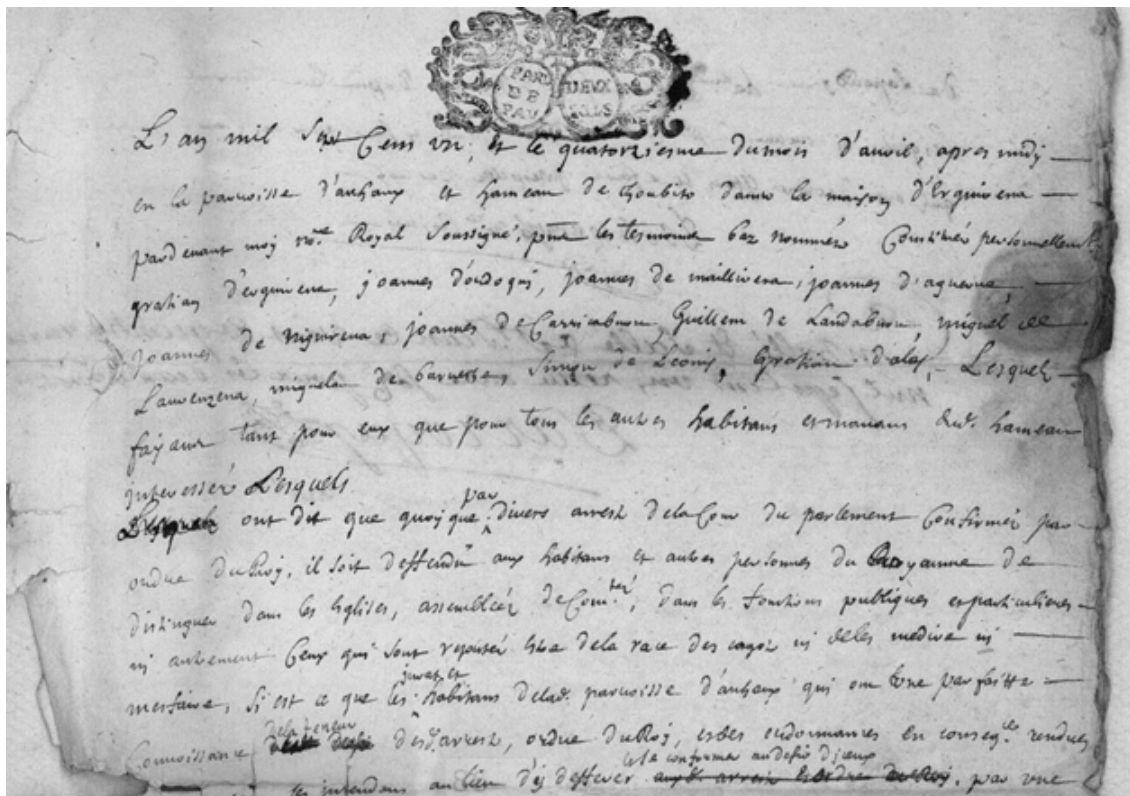 PAR DE PAU DEUX SOLS
L'an mil sept Cens un, et le quatorziesme du mois d'avril, apres midy
en la parroisse d'anhaux et hameau de choubito dans la maison d'Erguirena
pardevant moy no.re Royal Soussigné, pnts les tesmoins bas nommés Constitués personnellemt.
gratian d'erguirena, joannes d'ordoqui, joannes de maillivera, joannes d'aguerre,
joannes de joannes de Carricaburu, Guillem de Landaburu, miguel de
Laurenzena, miguelon de Simon de Leonis, Gratian Lesquels
faisant tant pour eux que pour tous les autres habitans et manans dud. hameau
interessés Lesquels
Lesquels ont dit que quoy que par divers arrests de la Cour du parlement Confirmés par
ordre du Roy, il soit deffendu aux habitans et autres personnes du Royaume de
distinguer dans les Eglises, assemblées de Com.té, dans les fonctions publiques et particulieres
ni autrement Ceux qui sont reputés estre de la race des cagots ni de les medire ni
mesfaire, si est ce que les jurats et habitans de lad. parroisse d'anhaux qui ont une parfaitte
Connoissance de la teneur desd. arrests, ordre du Roy, et des ordonnances en conseq.ce rendues
intendans au lieu d'y defferer et se conformer au desir d'iceux par une